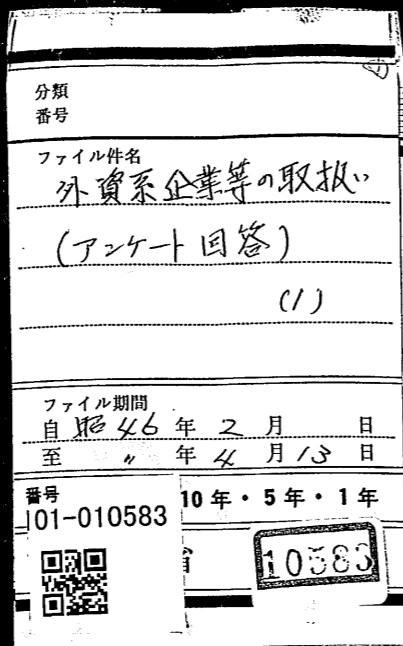 分類
番号
ファイル件名
外資系企業等の取扱い
(アンケート回答)
(1)
ファイル期間
自 昭46年2月 日
至 〃 年4月13日
番号
10年・5年・1年
01-010583
省
10583